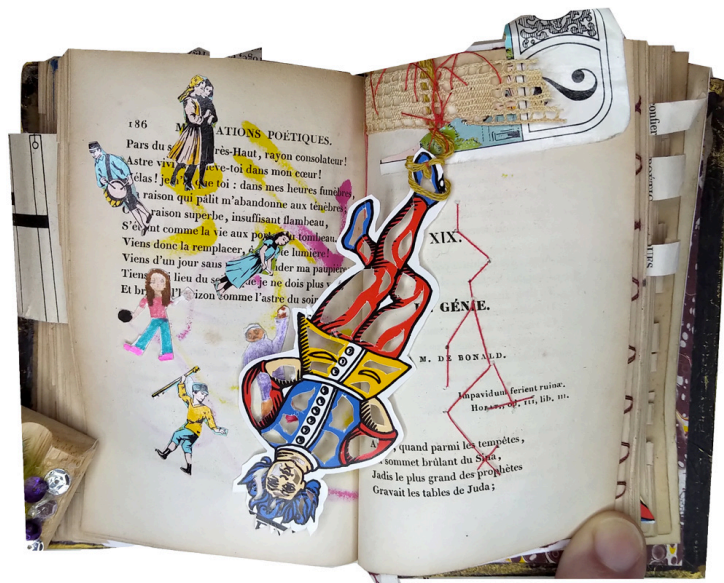 186 ATIONS POÉTIQUES.
Pars du rès-Haut, rayon consolateur!
Astre ève-toi dans mon cœur!
élas! que toi : dans mes heures funèbres,
raison qui pâlit m'abandonne aux ténèbres;
raison superbe, insuffisant flambeau,
S'éteint comme la vie aux du tombeau.
Viens donc la remplacer, lumière!
Viens d'un jour sans ma paupière
lieu du que je ne dois plus
Et l'horizon comme l'astre du
2
XIX.
GÉNIE.
M. DE BONALD.
Impavidum ferient ruinæ.
III, lib. III.
quand parmi les tempêtes,
sommet brûlant du Sina,
Jadis le plus grand des prophètes
Gravait les tables de Juda;
onfier